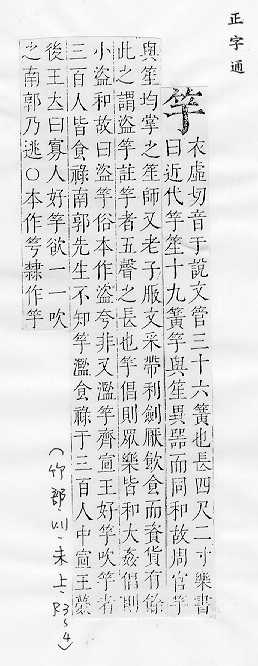 正字通
竽
衣虛切音于說文管三十六簧也長四尺二寸樂書
曰近代竽笙十九簧竽與笙異器而同和故周官竽
與笙均掌之笙師又老子服文采帶利劍厭飲食而資貨有餘
此之謂盜竽註竽者五聲之長也竽倡則眾樂皆和大姦倡則
小盜和故曰盜竽俗本作盜夸非又濫竽齊宣王好竽吹竽者
三百人皆食祿南郭先生不知竽濫食祿于三百人中宣王薨
後王曰寡人好竽欲一一吹
之南郭乃逃○本作隸作竽
(竹部、未上、P3~4)